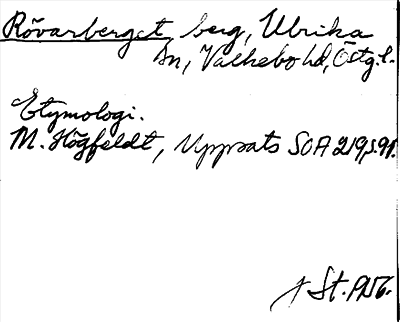 Rövarberget, berg, Ulrika
sn, Valkebo hd, Östg.l.
Etymologi.
M. Högfeldt, Uppsats SOA 219, s. 91.
St. PNb.